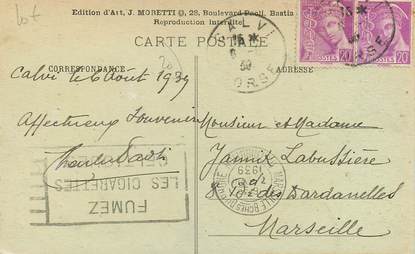 lot
Edition d'Art, J. MORETTI, 28, Boulevard Paoli, Bastia
Reproduction interdite
CARTE POSTALE
CORRESPONDANCE
ADRESSE
CALVI
CORSE
20
POSTES
20
Calvi le 6 Août 1939
Affectueux Souvenirs
Monsieur et Madame
Yannik Labussière
8 Bd des Dardanelles
Marseille
MARSEILLE
1939
FUMEZ
LES CIGARETTES